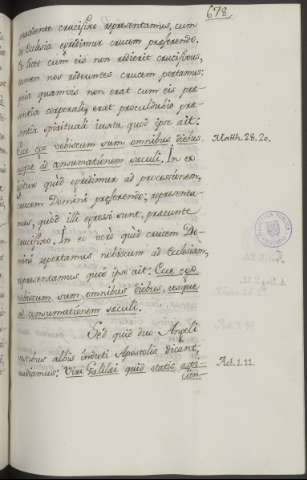 678
præsente crucifixo repræsentamus, cum
de Ecclesia egredimur crucem præferendo.
Et licet cum eis non redierit crucifixus,
tamen nos redeuntes crucem portamus:
quia quamvis non erat cum eis præ-
sentia corporali, erat proculdubio præ-
sentia spirituali iuxta quod ipse ait:
Ecce ego vobiscum sum omnibus diebus
usque ad consumationem seculi. In eo
igitur quod egredimur ad processionem,
crucem Domini præferendo, repræsenta-
mus, quod illi egressi sunt, præsente
crucifixo. In eo vero quod crucem Do-
mini reportamus nobiscum ad Ecclesiam,
repræsentamus quod ipse ait: Ecce ego
vobiscum sum omnibus diebus, usque
ad consumationem seculi.
Sed quod duo Angeli
vestibus albis induti Apostolis dicant,
audiamus: Viri Galilei quid statis aspi-
cien-
Matth. 28. 20.
Act. 1. 11.